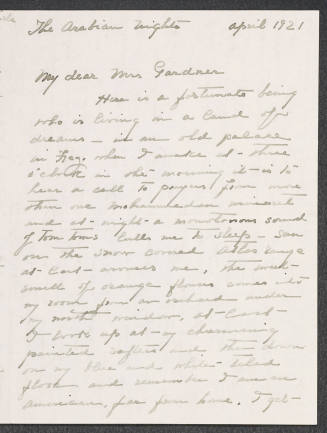 The Arabian Nights April 1921
My dear Mrs Gardner
Here is a fortunate being
who is living in a land of
dreams — in an old palace
in Fez. when I awake at three
o'clock in the morning it is to
hear a call to prayers from more
than one Mohammedan minaret
and at night a monotonous sound
of Tom Toms lulls me to sleep — Sun
on the snow covered Atlas range
at last arouses me, the
smell of orange flowers comes into
my room from an orchard under
my north window, at last
I look up at my charming
painted rafters and then down
on my blue and white tiled
floor and remember I am an
American, far from home. I get